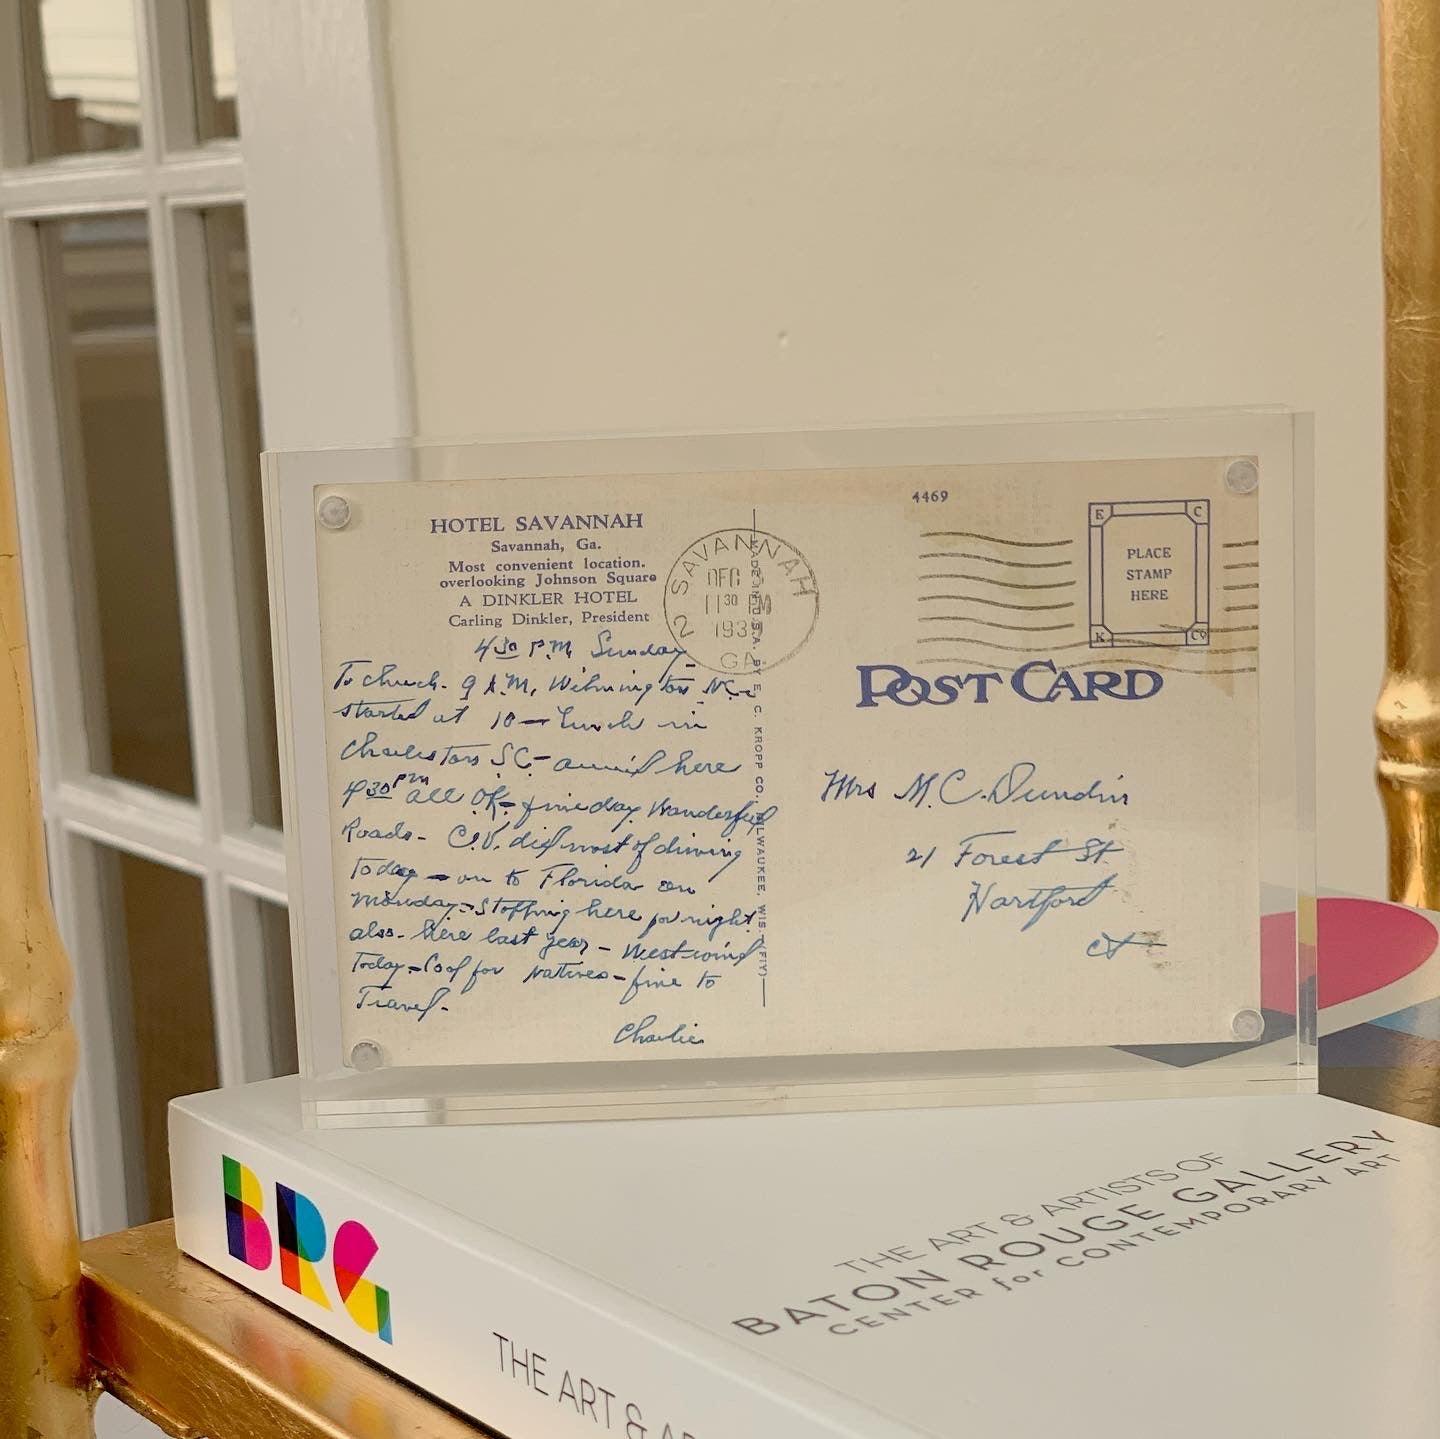 HOTEL SAVANNAH
Savannah, Ga.
Most convenient location.
overlooking Johnson Square
A DINKLER HOTEL
Carling Dinkler, President
4 30 P.M. Sunday
To church - 9 A.M. Wilmington N.C. -
started at 10 - Lunch in
Charleston S.C. - arrived here
4 30 PM all OK - fine day. Wonderful
Roads - C.V. did most of driving
Today - on to Florida on
Monday - Stopping here for night
also - here last year - West wind
Today - Cool for natives - fine to
Travel -
Charlie
SAVANNAH
DEC
11 30 PM
193
2
GA
MADE IN U.S.A. BY E. C. KROPP CO. MILWAUKEE, WIS. (FIY)
4469
E C
PLACE
STAMP
HERE
K Co
POST CARD
Mrs M. C. Dundin
21 Forest St
Hartford
Ct
BRG
THE ART &
THE ART & ARTISTS OF
BATON ROUGE GALLERY
CENTER for CONTEMPORARY ART